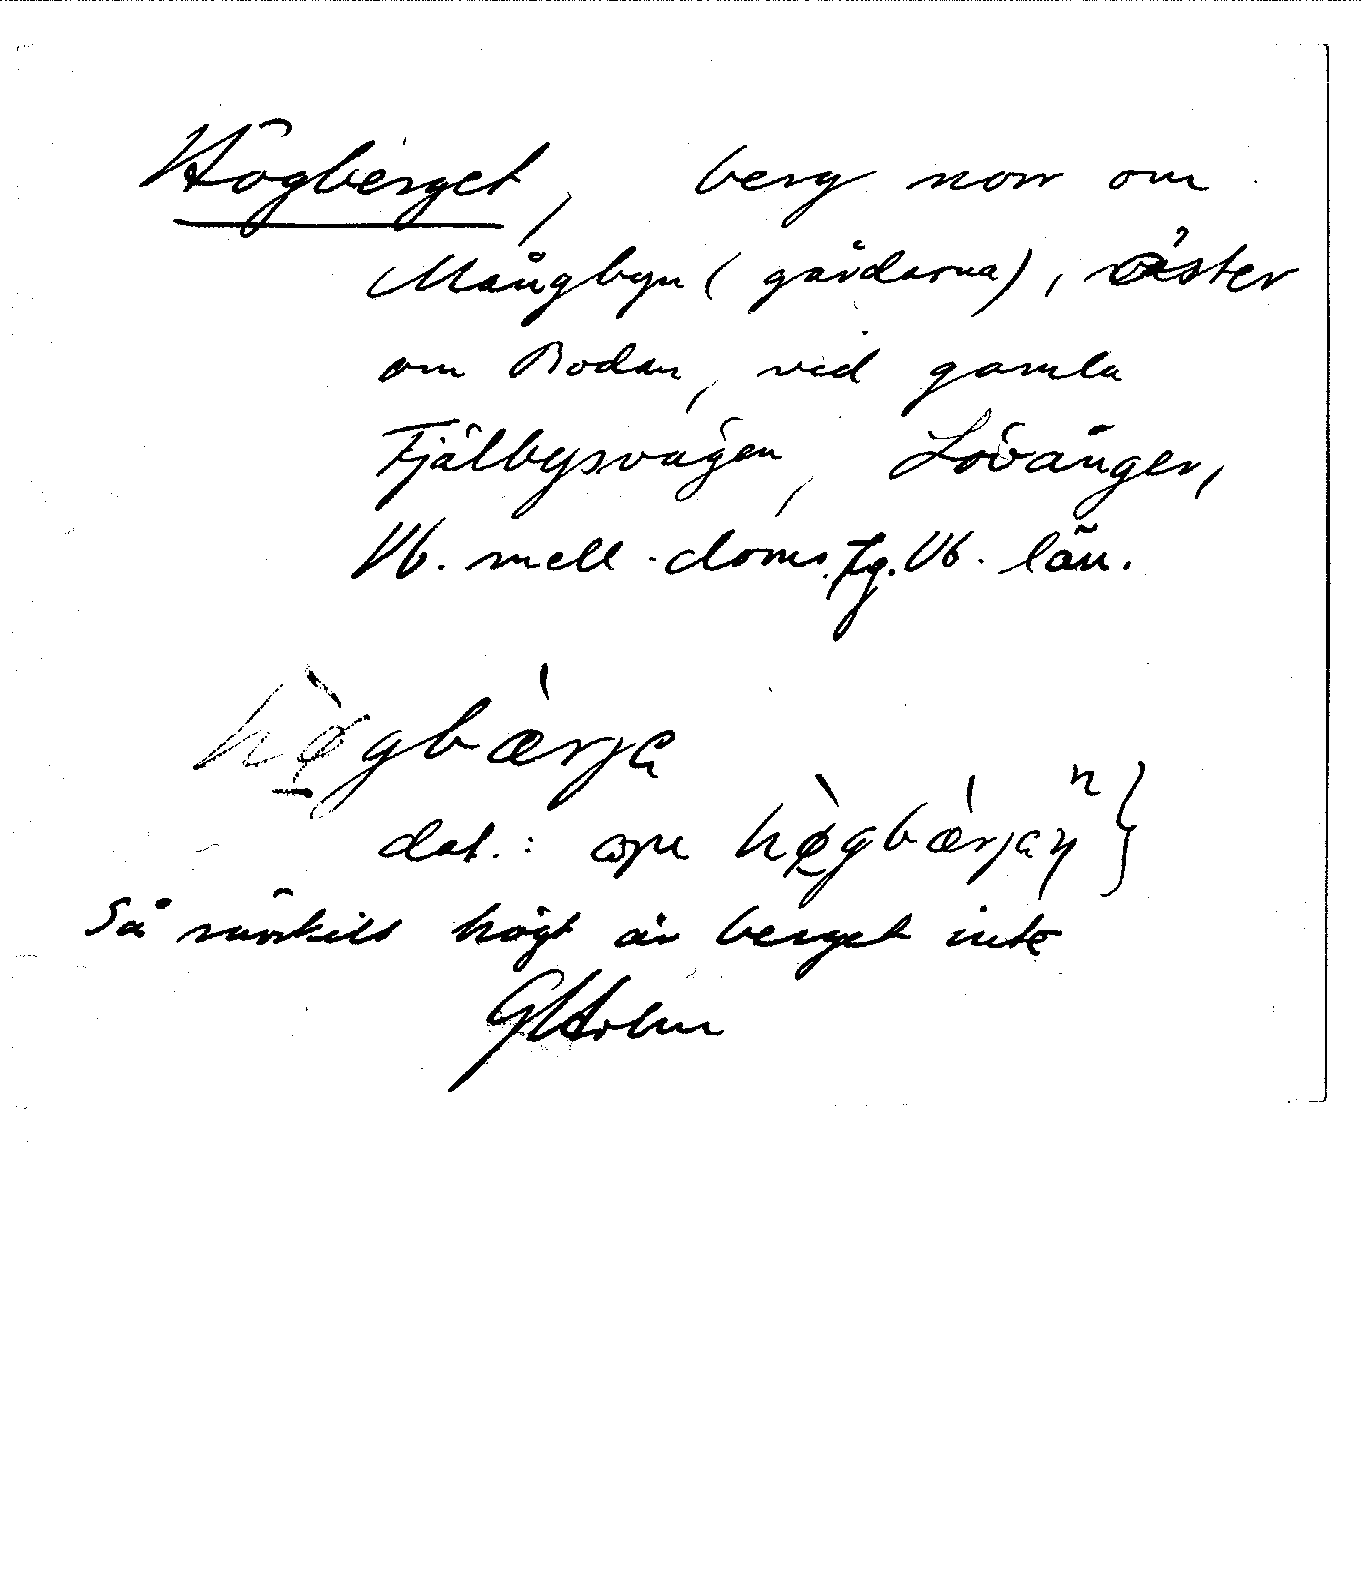 Högberget, berg norr om
Mångbyn (gårdarna), öster
om Bodan, vid gamla
Fjälbysvägen, Lövånger,
Vb. mell. doms. Tg. Vb. län.
hø̀gbæ̀rja
dat.: opa hø̀gbæ̀rjaṇ n }
Så särskilt högt är berget inte
GHolm